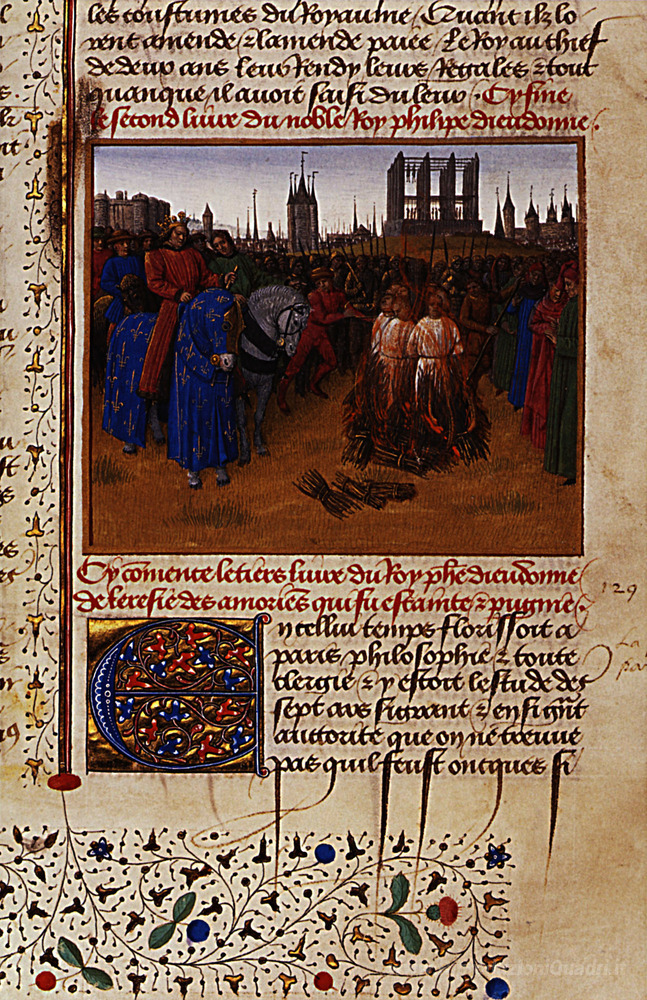 les coustumes du Royaume. Quant ilz lo
rent amende & lamende paiee. Le Roy au chief
de deux ans leur Rendy leurs Regales & tout
quanque il avoit saisi du leur. Cy fine
le second livre du noble Roy philipe dieudonne.
Cy commence le tiers livre du Roy phe dieudonne
de leresie des amoriens qui fu estainte & pugnie.
En cellui temps florissoit a
paris philosophie & toute
clergie & y estoit lestude des
sept ars si grant & en si grant
auctorite que on ne treuve
pas quil feust oncques si
129